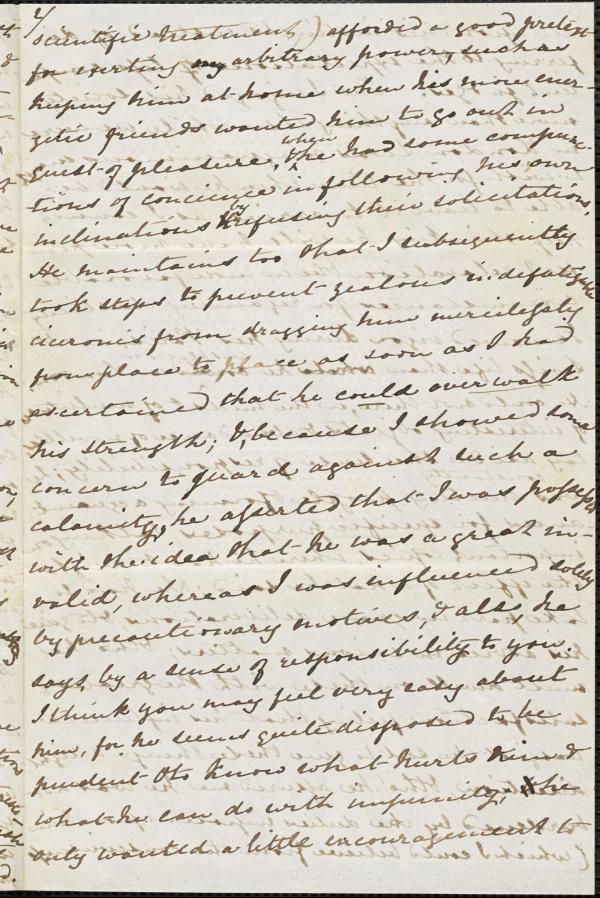 4/
scientific treatment) afforded a good pretext
for exerting my arbitrary power, such as
keeping him at home when his more ener-
getic friends wanted him to go out in
quest of pleasure, when he had some compunc-
tions of concience in following his own
inclinations by refusing their solicitations,
He maintains too that I subsequently
took steps to prevent zealous indefatigable
ciceronis from dragging him mercilessly
from place to place as soon as I had
ascertained that he could over walk
his strength; &, because I showed some
concern to guard against such a
calamity, he asserted that I was possessed
with the idea that he was a great in-
valid, whereas I was influenced solely
by precautionary motives, & also, he
says, by a sense of responsibility to you.
I think you may feel very easy about
him, for he seems quite disposed to be
prudent & to know what hurts him &
what he can do with impunity, he
only wanted a little encouragement to